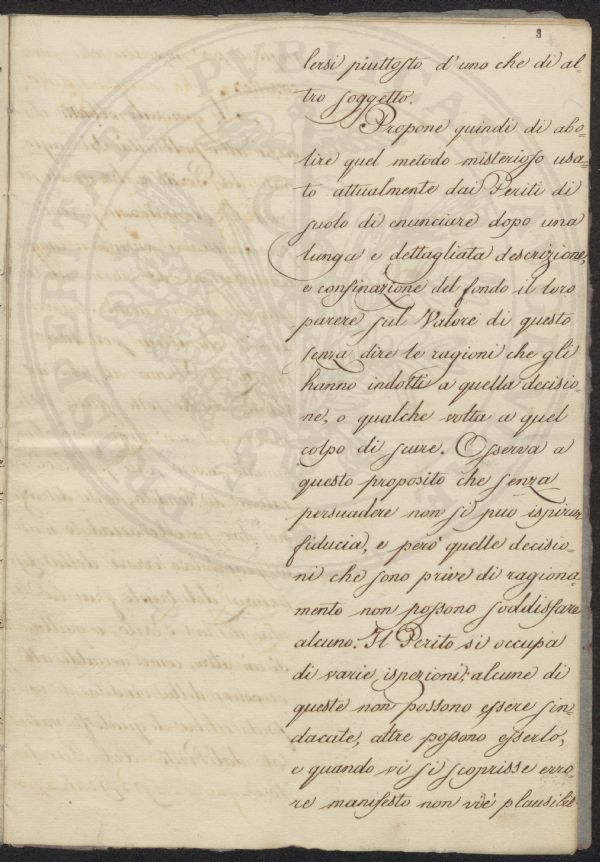 3
lersi piuttosto d'uno che di al=
tro soggetto.
Propone quindi di abo=
lire quel metodo misterioso usa=
to attualmente dai Periti di
suolo di enunciare dopo una
lunga e dettagliata descrizione,
e confinazione del fondo il loro
parere sul Valore di questo
senza dire le ragioni che gli
hanno indotti a quella decisio=
ne, o qualche volta a quel
colpo di scure. Osserva a
questo proposito che senza
persuadere non si può ispirar
fiducia, e però quelle decisio=
ni che sono prive di ragiona=
mento non possono soddisfare
alcuno. Il Perito si occupa
di varie ispezioni; alcune di
queste non possono essere sin=
dacate, altre possono esserlo,
e quando vi si scoprisse erro=
re manifesto non v'è plausibile
PROSPERITATI PVBLICAE